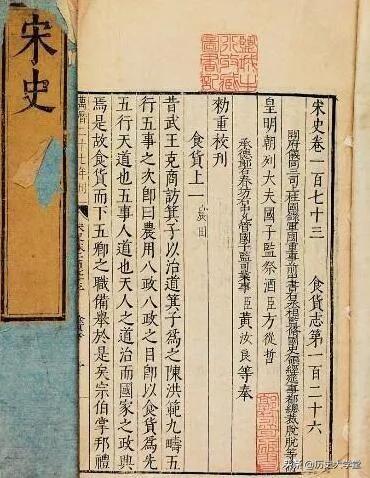 宋史
宋史卷一百七十三 食貨志第一百二十六
開府儀同三司上柱國錄軍國重事前中書右丞相監修國史領經筵事都總裁脫脫等修
皇明朝列大夫國子監祭酒臣方從哲
承德郎右春坊右中允管國子監司業事臣黃汝良等奉
勑重校刊
食貨上一 農田
昔武王克商訪箕子以治道箕子爲之陳洪範九疇五
行五事之次卽曰農用八政八政之目卽以食貨爲先
五行天道也五事人道也天人之道治而國家之政興
焉是故食貨而下五卿之職備舉於是矣宗伯掌邦禮
萬曆二十七年刊
头条 @历史大学堂